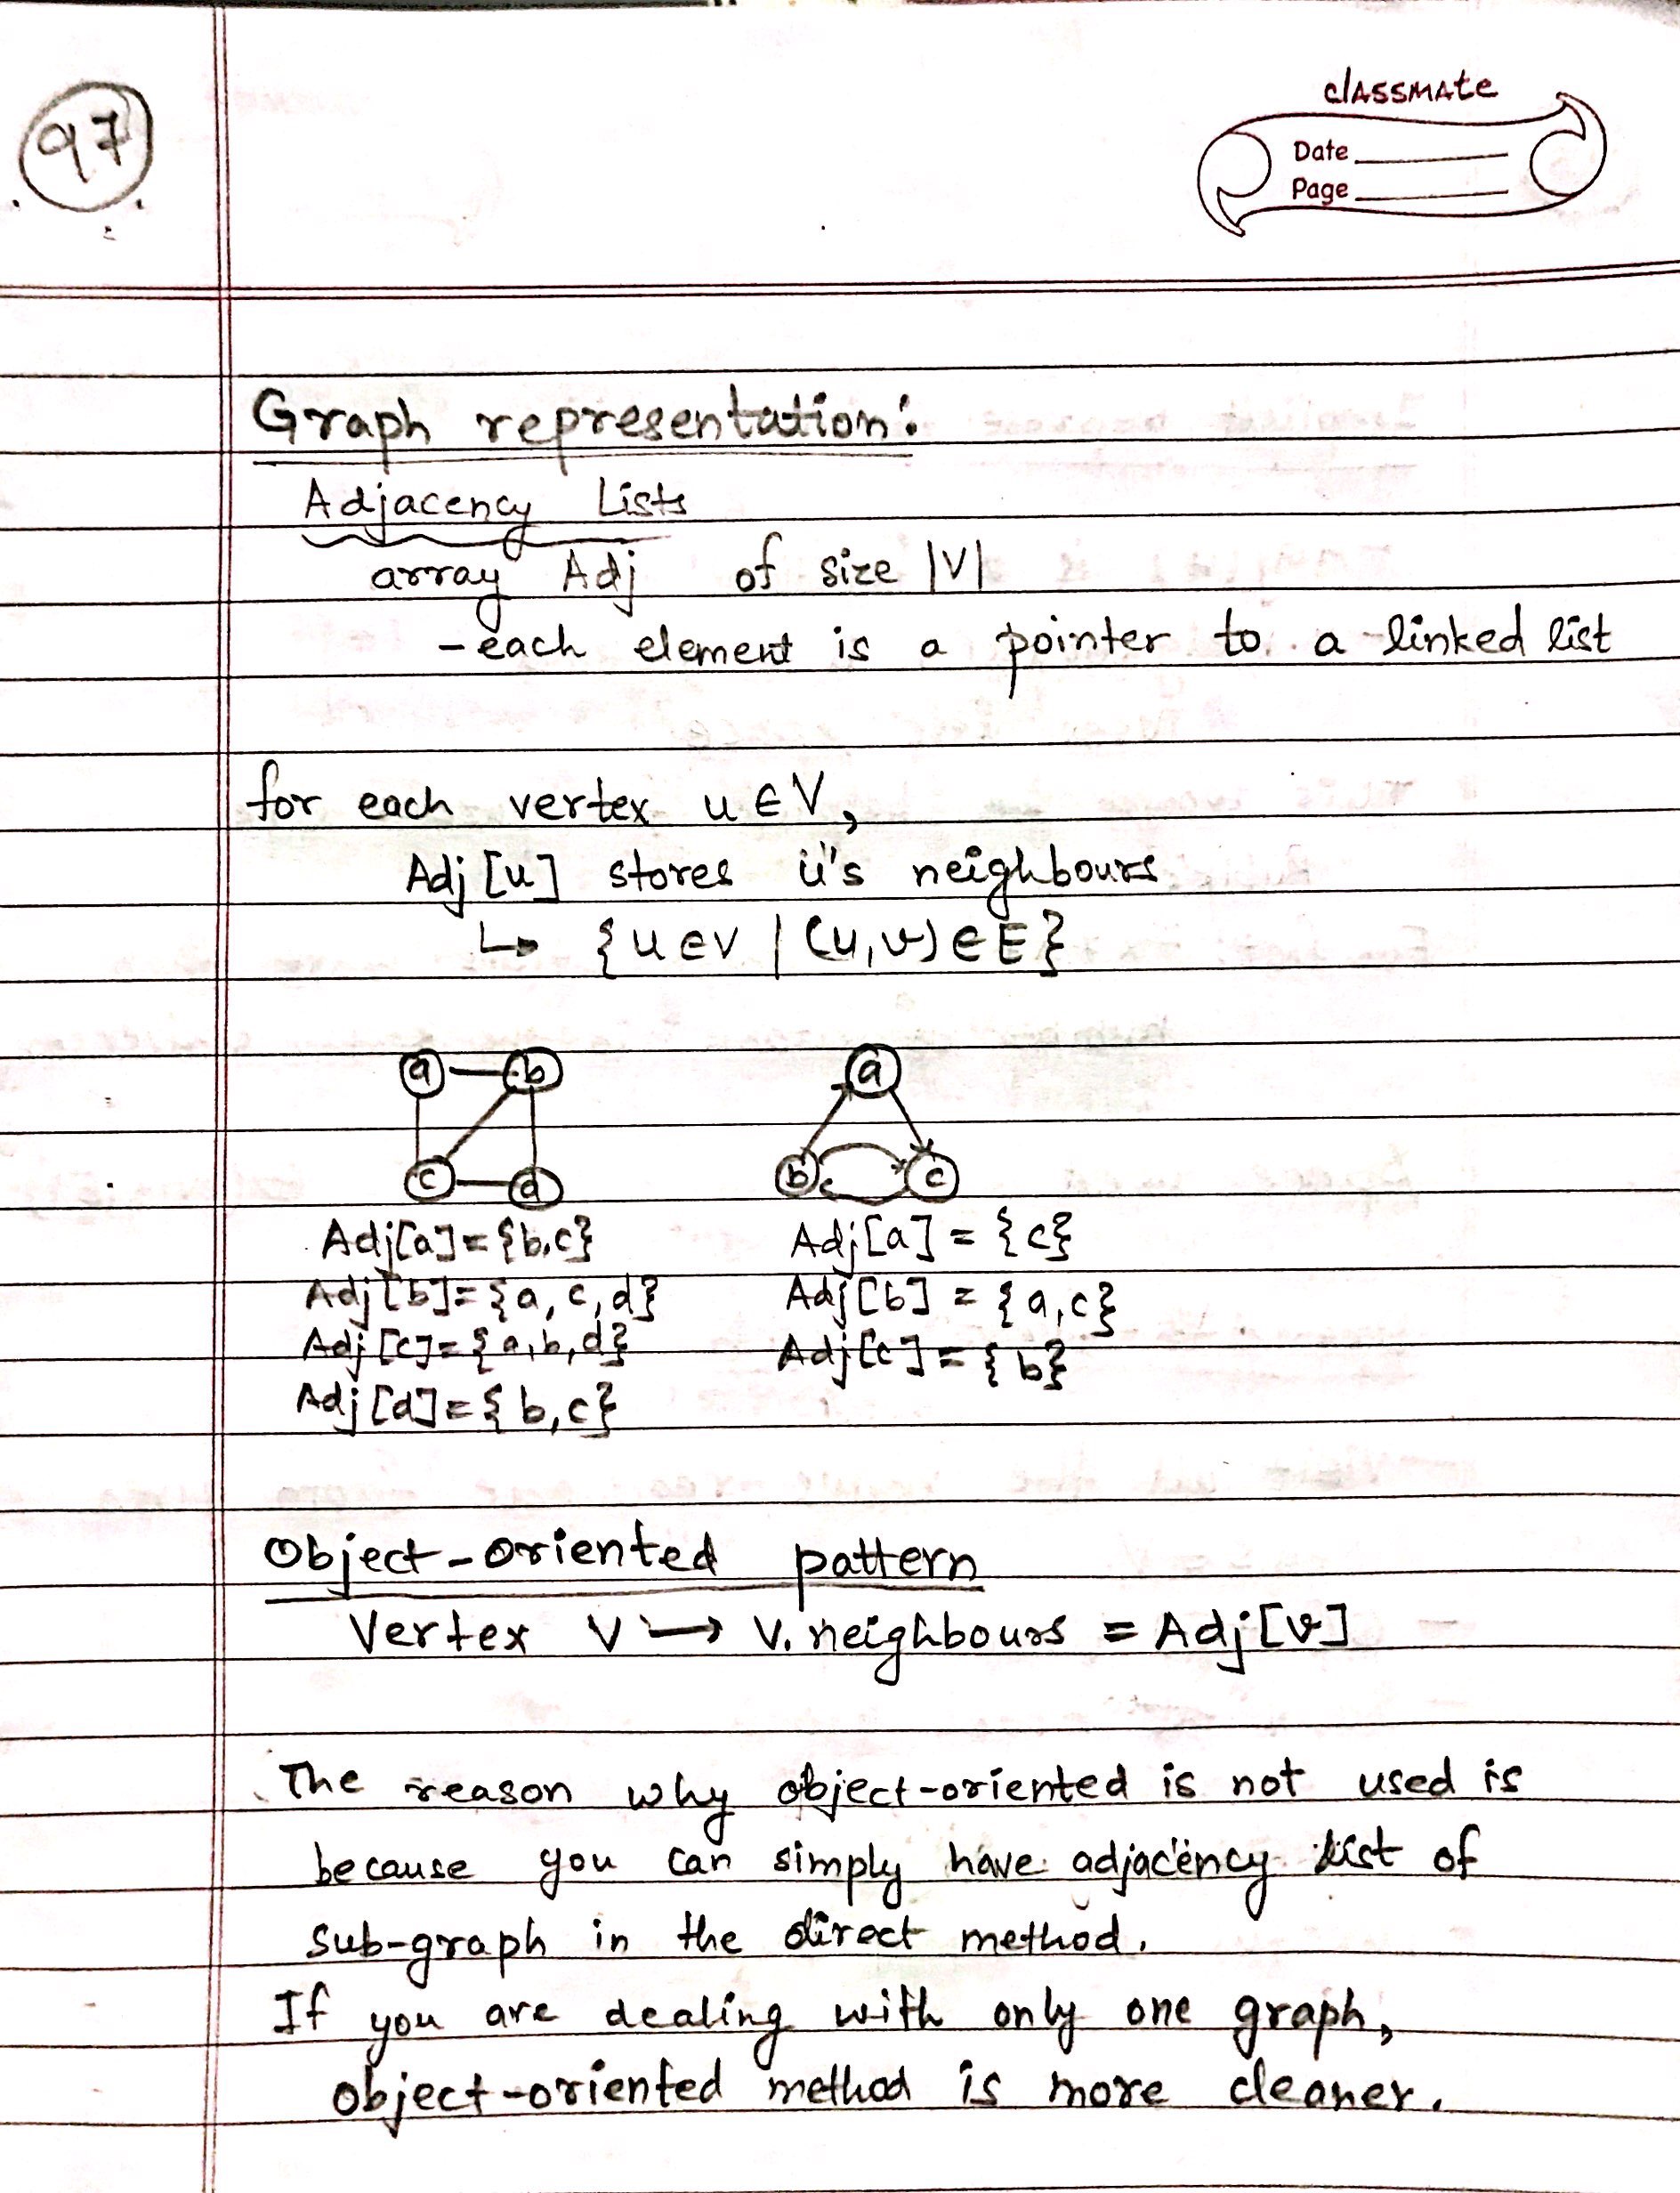 97
classmate
Date
Page
Graph representation:
Adjacency Lists
array Adj of size |V|
- each element is a pointer to a linked list
for each vertex u ∈ V,
Adj [u] stores u's neighbours
↳ {u ∈ V | (u,v) ∈ E}
a b a
c d b c
Adj[a] = {b,c} Adj[a] = {c}
Adj[b] = {a, c, d} Adj[b] = {a,c}
Adj[c] = {a,b,d} Adj[c] = {b}
Adj[d] = {b,c}
Object-oriented pattern
Vertex V → V.neighbours = Adj[v]
The reason why object-oriented is not used is
because you can simply have adjacency list of
sub-graph in the direct method.
If you are dealing with only one graph,
object-oriented method is more cleaner.